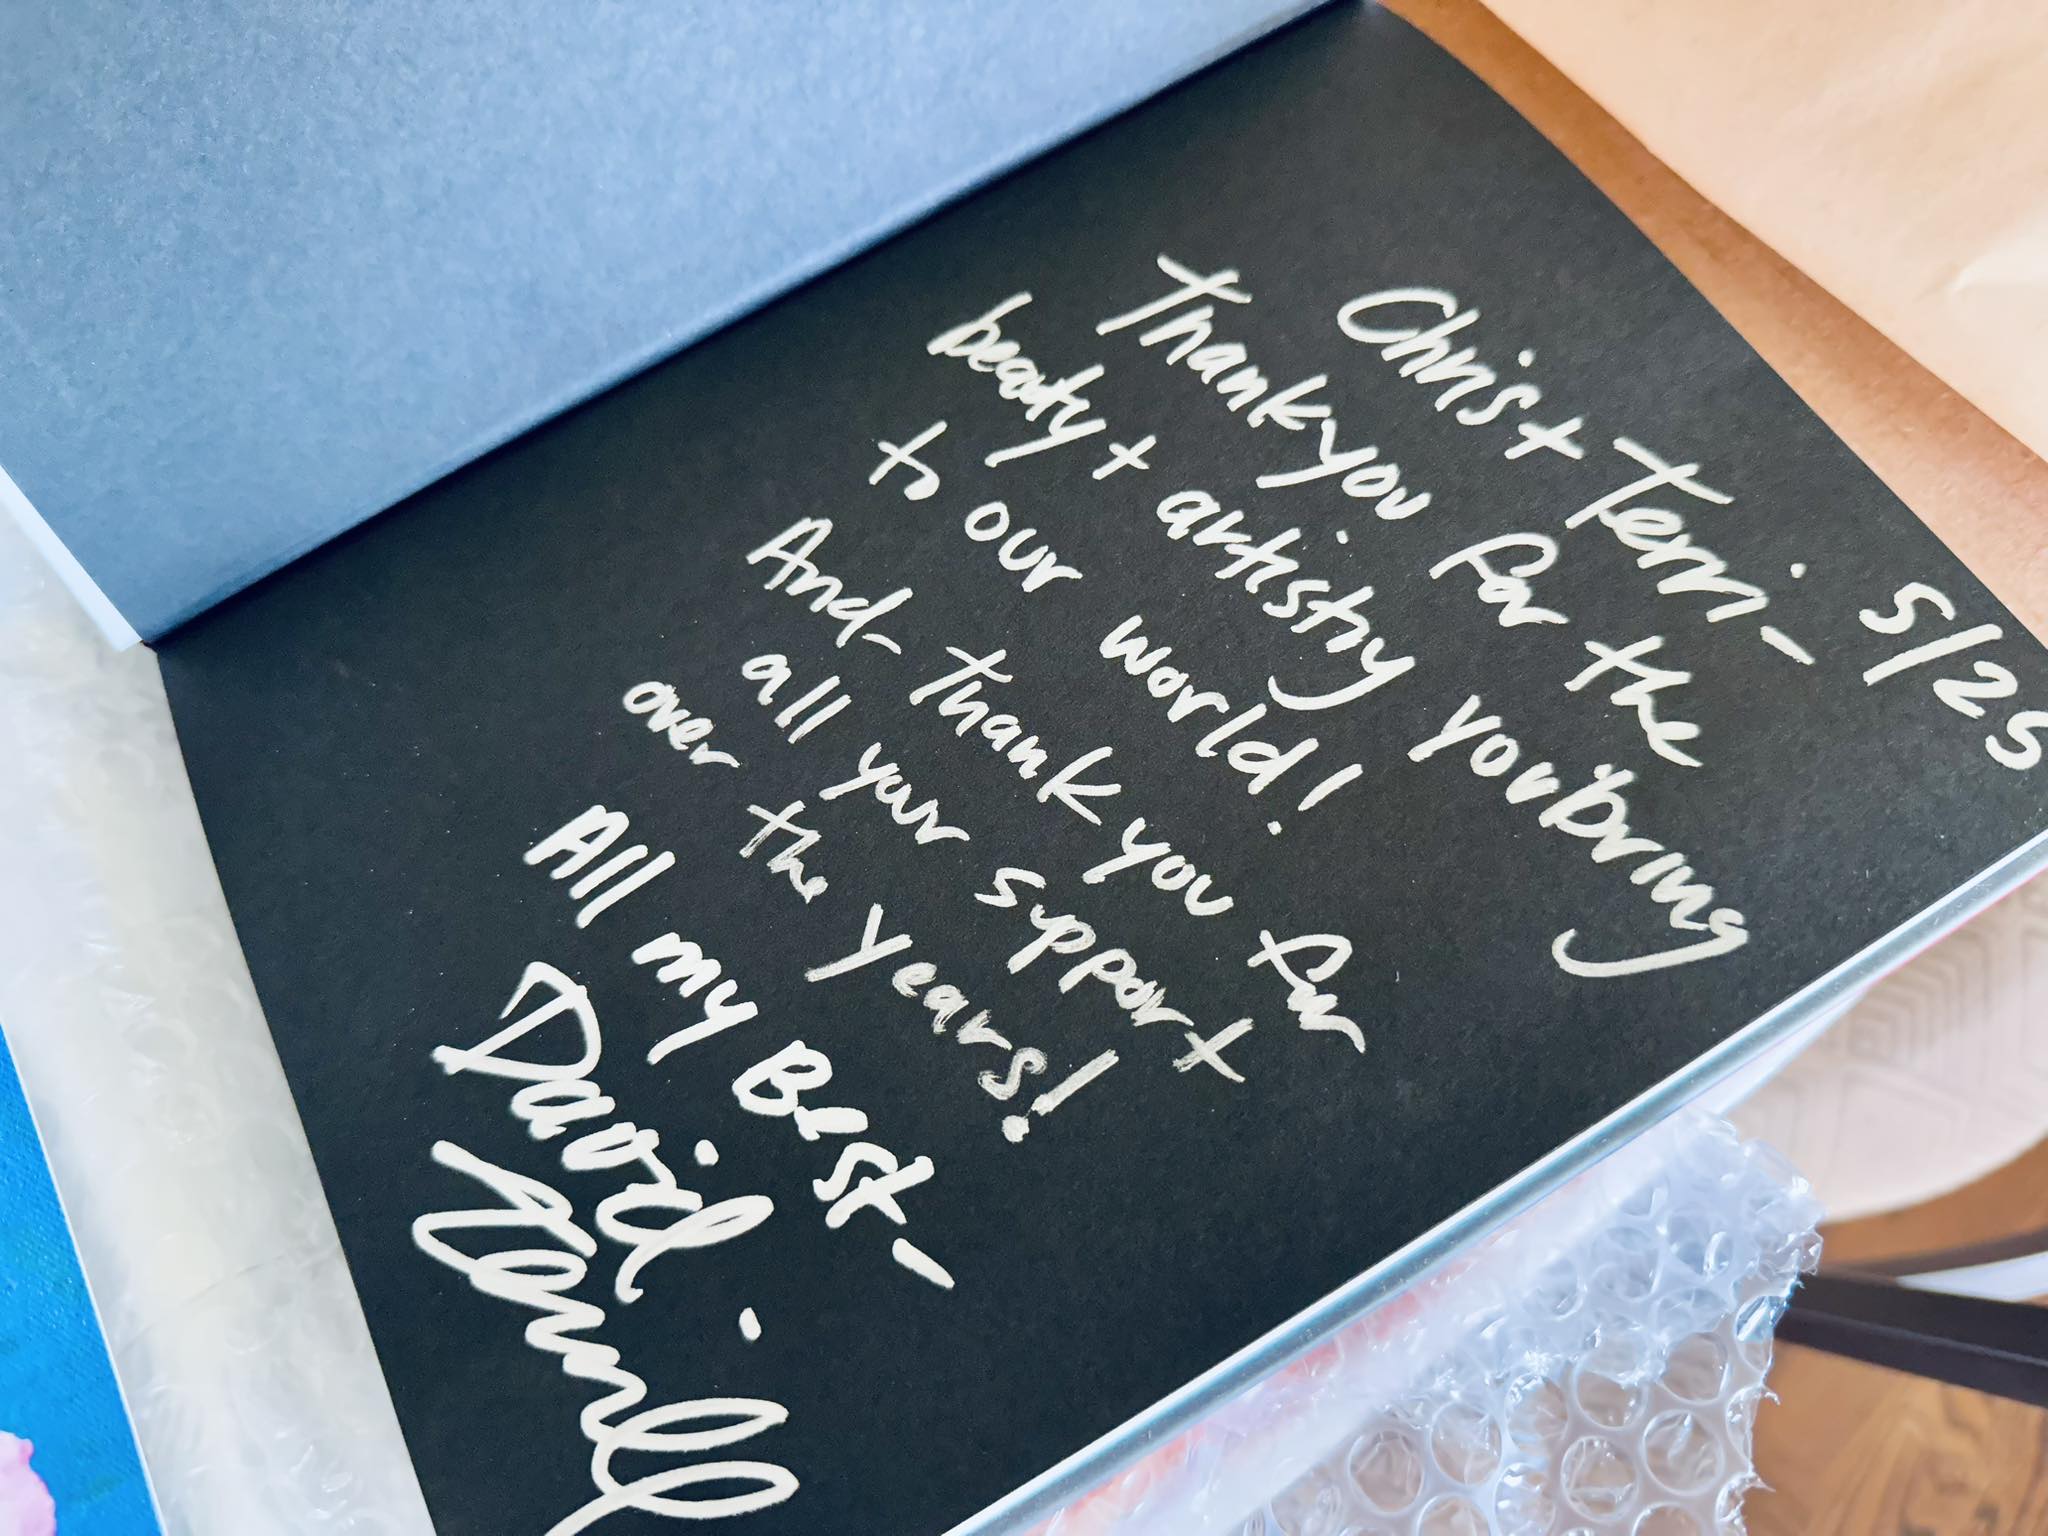 5/25
Chris + Terri -
Thank you for the
beauty + artistry you bring
to our world!
And - thank you for
all your support
over the years!
All my Best -
David